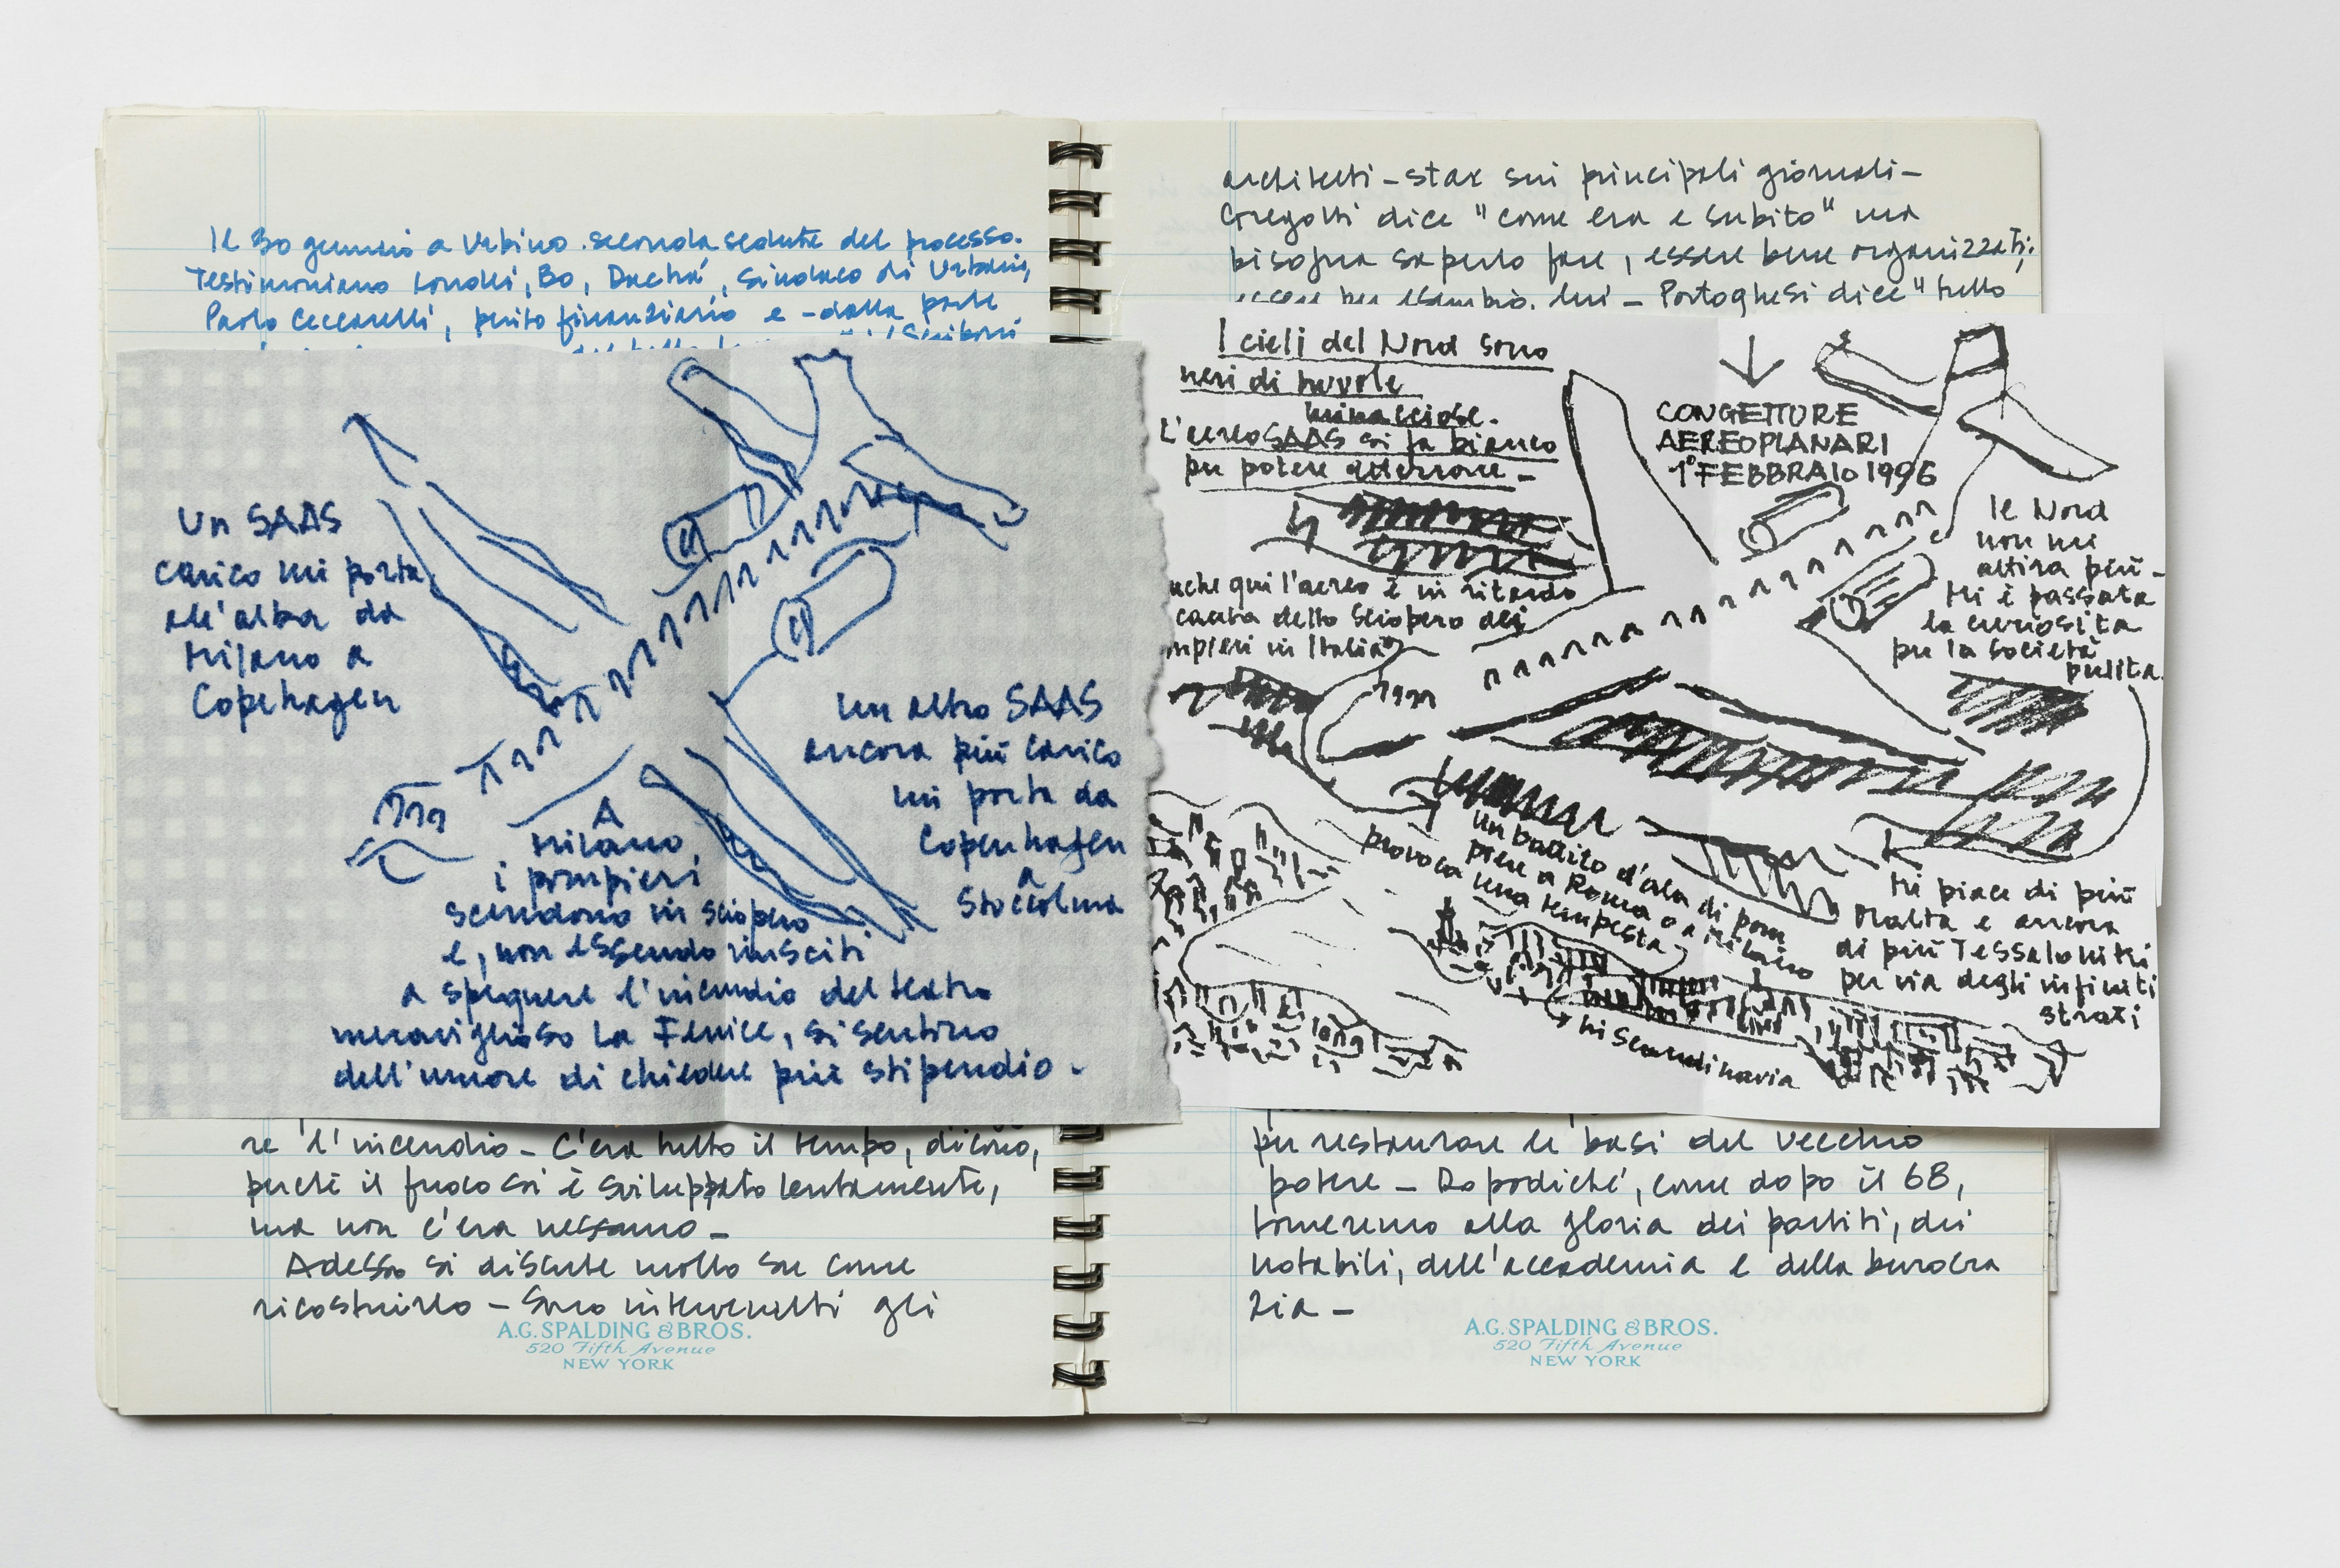 Il 30 gennaio a Urbino seconda seduta del processo.
Testimoniano Londei, Bo, Dachà, Sindaco di Urbania,
Paolo Ceccarelli, perito finanziario e - dalla parte
Un SAAS
carico mi porta
all'alba da
Milano a
Copenhagen
un altro SAAS
ancora più carico
mi porta da
Copenhagen
a
Stoccolma
A
Milano,
i pompieri
scendono in sciopero
e, non essendo riusciti
a spegnere l'incendio del teatro
meraviglioso La Fenice, si sentono
dell'umore di chiedere più stipendio.
re l'incendio - C'era tutto il tempo, dicono,
perché il fuoco si è sviluppato lentamente,
ma non c'era nessuno -
Adesso si discute molto su come
ricostruirlo - Sono intervenuti gli
A.G. SPALDING & BROS.
520 Fifth Avenue
NEW YORK
architetti-star sui principali giornali -
Gregotti dice "come era e subito" ma
bisogna saperlo fare, essere bene organizzati;
essere per esempio. lui - Portoghesi dice "tutto
I cieli del Nord sono
neri di nuvole
minacciose.
L'aereo SAAS si fa bianco
per potere atterrare -
anche qui l'aereo è in ritardo
causa dello sciopero dei
mpieri in Italia
CONGETTURE
AEREOPLANARI
1° FEBBRAIO 1996
Il Nord
non mi
attira più -
Mi è passata
la curiosità
per la società
pulita.
Un battito d'ala di
piere a Roma o a Milano
provoca una tempesta
in Scandinavia
Mi piace di più
Malta e ancora
di più Tessaloniki
per via degli infiniti
strati
per restaurare le basi del vecchio
potere - Dopodiché, come dopo il 68,
torneremo alla gloria dei partiti, dei
notabili, dell'accademia e della burocra
zia -
A.G. SPALDING & BROS.
520 Fifth Avenue
NEW YORK